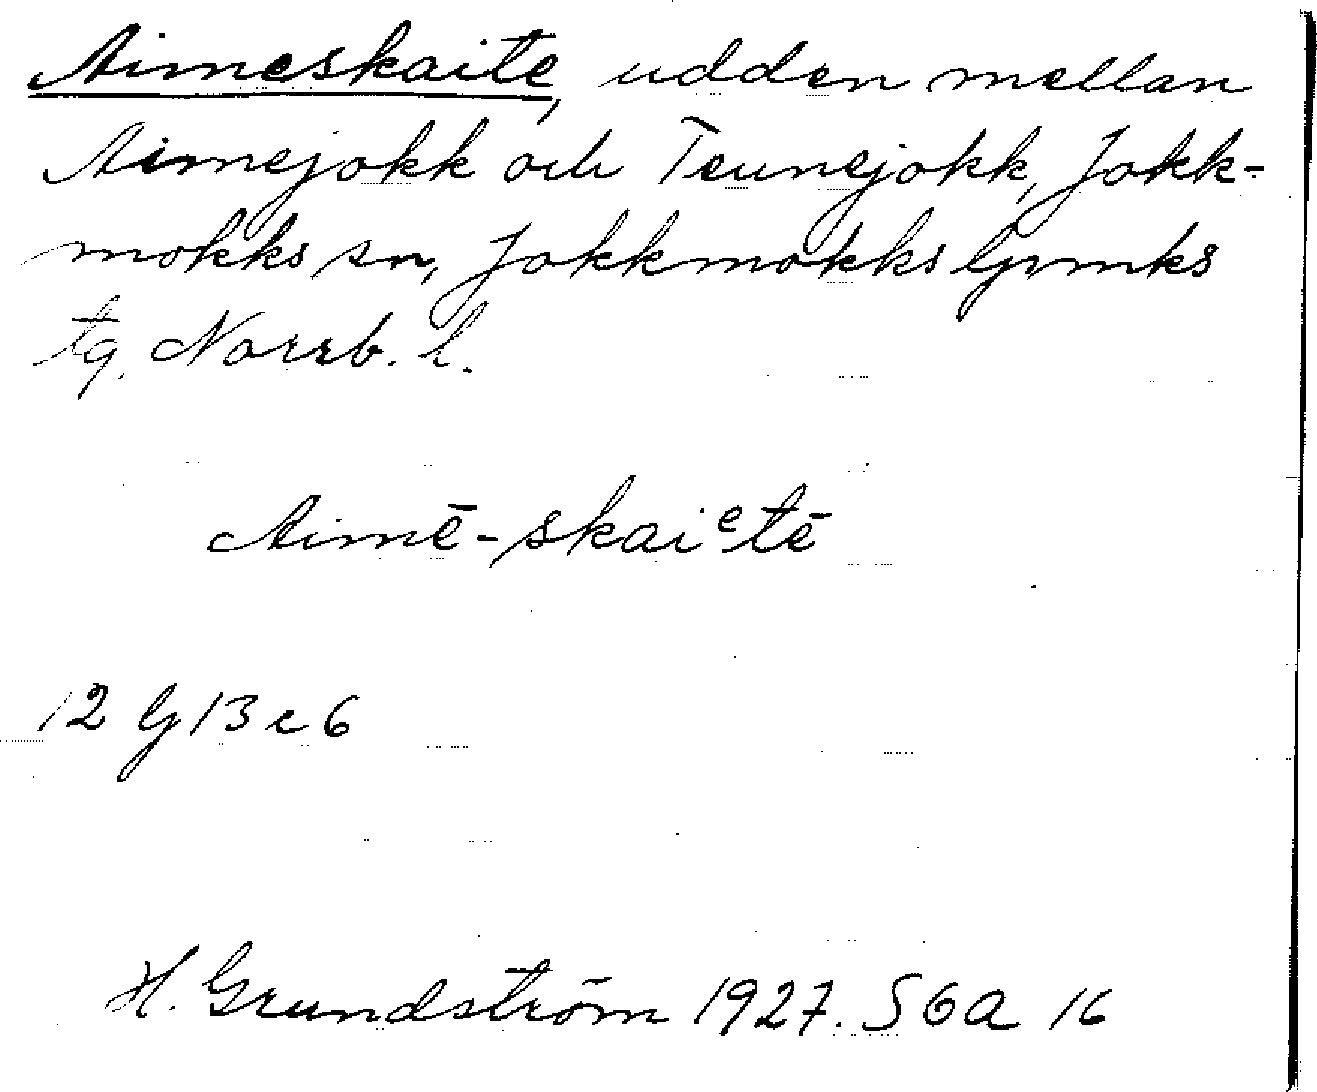 Aimeskaite, udden mellan
Aimejokk och Teunejokk, Jokk-
mokks sn, Jokkmokks lpmks
tg, Norrb. l.
Aimē-skaiᵉtē
12 G 13 c 6
H. Grundström 1927. S6a 16